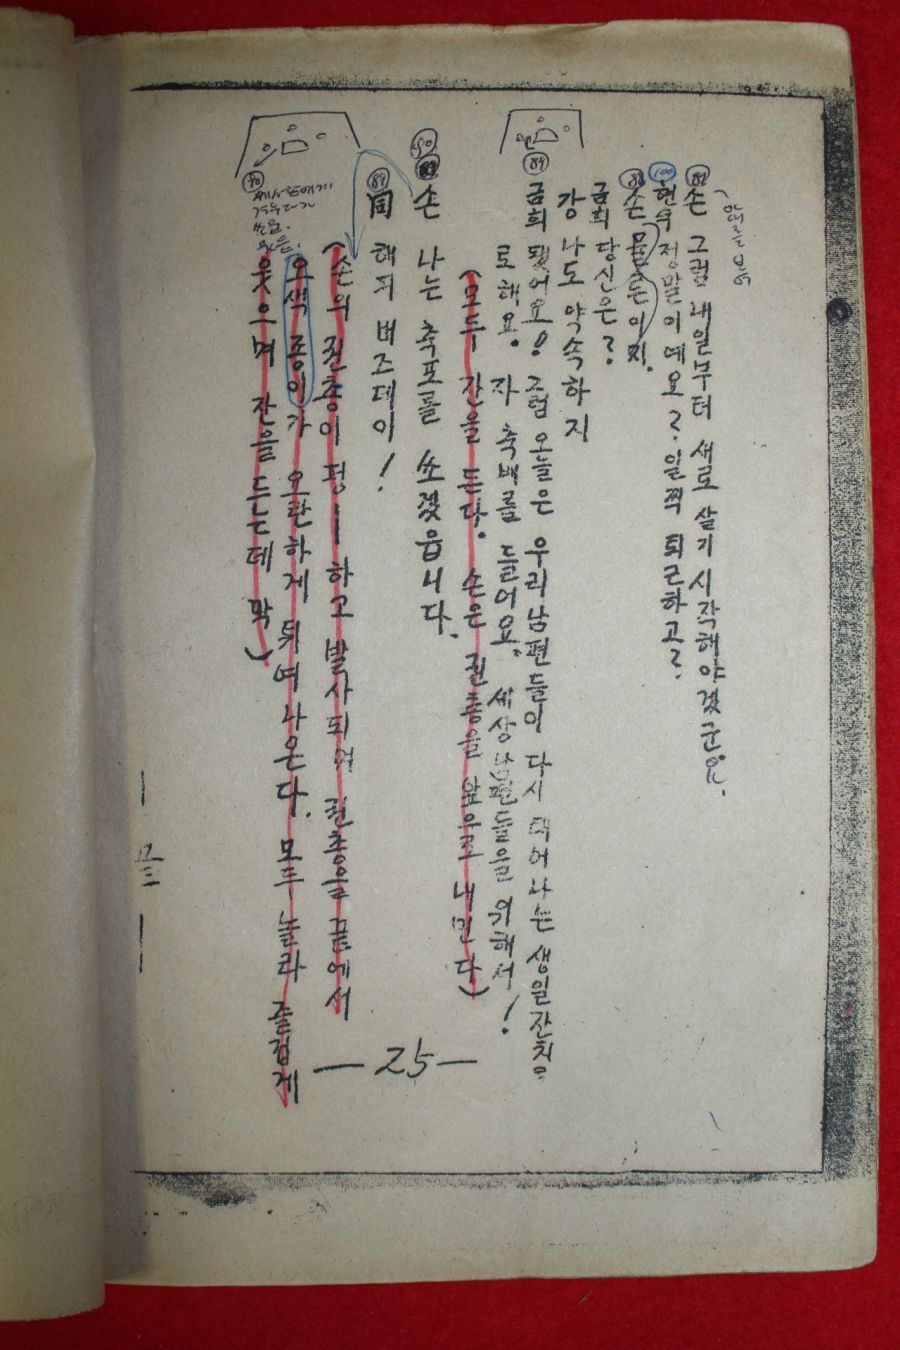 손 그럼 내일부터 새로 살기 시작해야겠군요.
100
현숙 정말이예요? 일찍 퇴근하고?
88
손 물론이지.
금희 당신은?
강 나도 약속하지
89
금희 됐어요! 그럼 오늘은 우리 남편들이 다시 태어나는 생일잔치으
로 해요. 자 축배를 들어요. 세상 남편들을 위해서!
(모두 잔을 든다. 손은 권총을 앞으로 내민다)
50
손 나는 축포를 쏘겠읍니다.
89
同 해피 버즈데이!
(손의 권총이 펑—하고 발사되며 권총을 끝에서
오색 종이가 요란하게 튀여 나온다. 모두 놀라 즐겁게
웃으며 잔을 드는데 막)
90
쏘음.
— 25 —